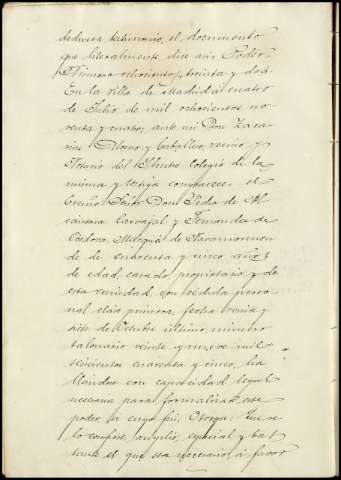 deduzca testimonio, el documento
que literalmente dice así: Poder.
Número ochocientos treinta y dos.
En la Villa de Madrid á cuatro
de Julio de mil ochocientos no
venta y cuatro; ante mi Don Zaca
rias Alonso y Caballero, vecino y
Notario del Ilustre Colegio de la
misma y testigos comparece: el
Excmo Señor Don Pedro de Al
cántara Carvajal y Fernandez de
Córdova, Marqués de Navamorcuen
de de cuarenta y cinco años
de edad, casado propietario y de
esta vecindad, con cédula perso
nal clase primera, fecha veinte y
siete de Octubre último, número
talonario veinte y nueve mil
seiscientos cuarenta y cinco, ha
llándose con capacidad legal
necesaria para formalizar este
poder, á cuyo fin, Otorga: Que se
lo confiere, amplio, especial y bas
tante el que sea necesario, á favor